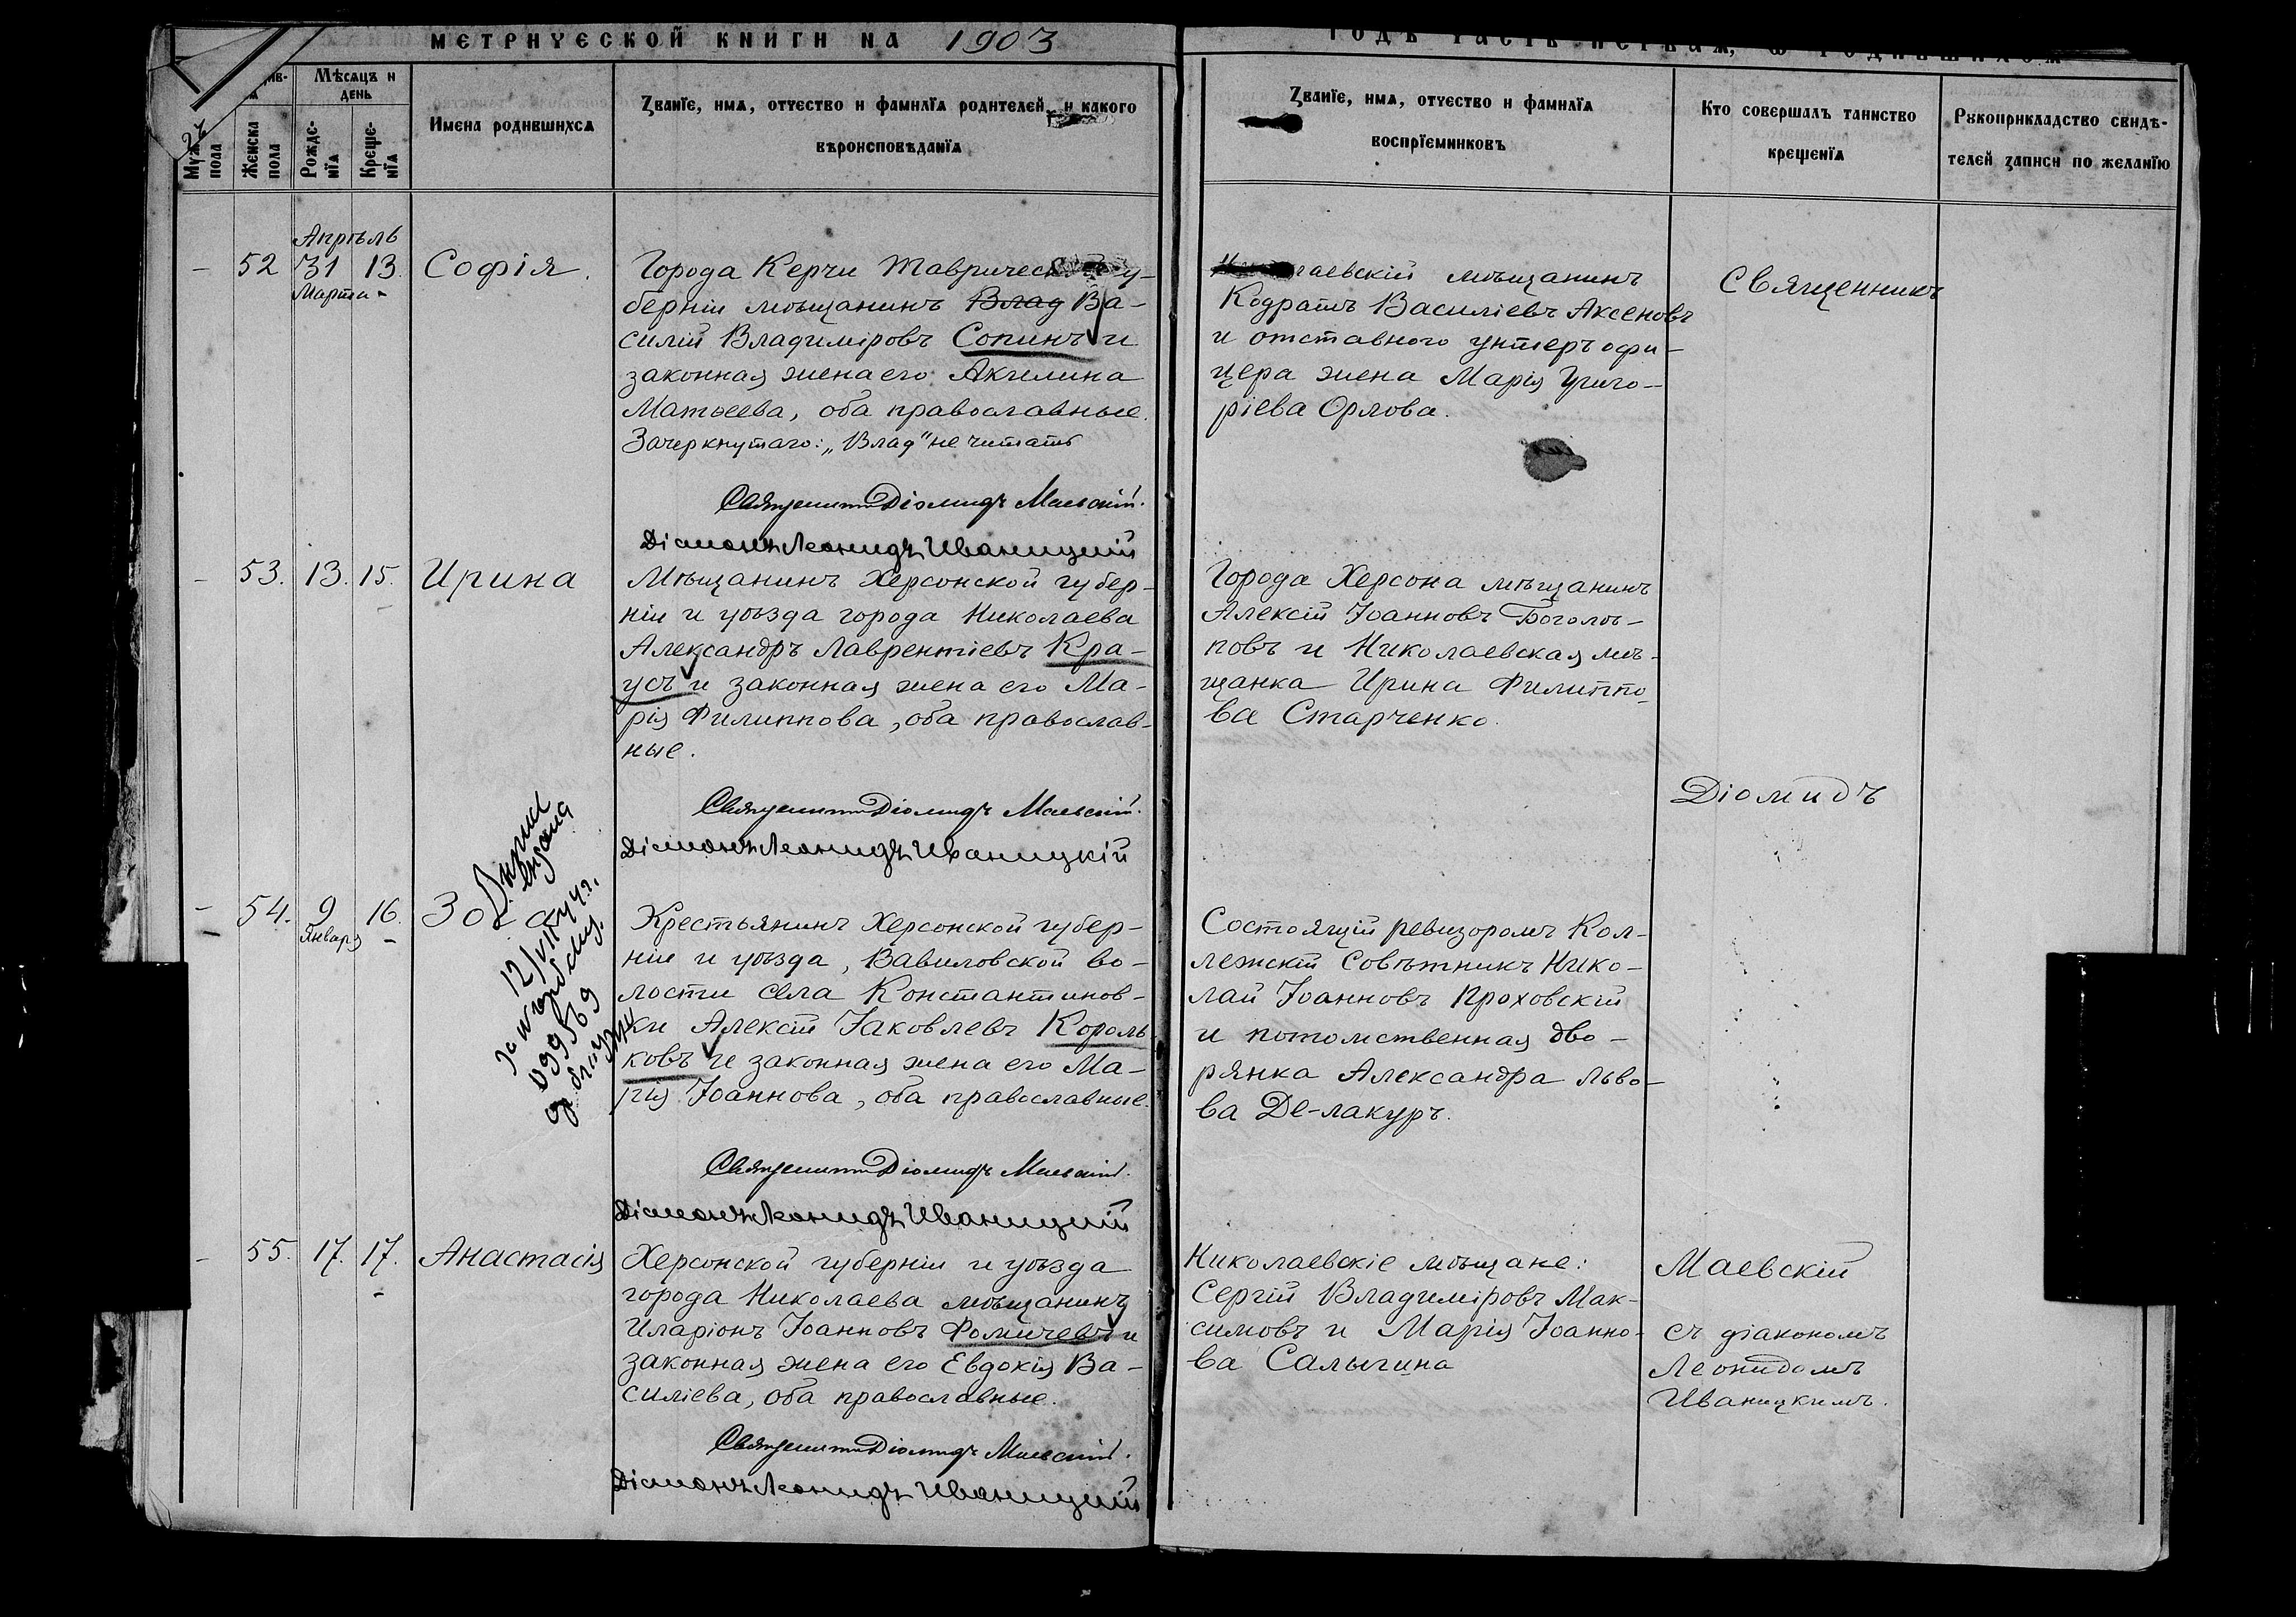 МЕТРИЧЕСКОЙ КНИГИ НА 1903
ГОДЪ ЧАСТЬ ПЕРВАЯ, О РОДИВШИХСЯ
Мѣсяцъ и
день
Женска
пола
Рожде-
нїя
Креще-
нїя
Имена родившихся
Званїе, имя, отчество и фамилїя родителей, и какого
вѣроисповѣданїя
Званїе, имя, отчество и фамилїя
воспрїемниковъ
Кто совершалъ таинство
крещенїя
Рукоприкладство свидѣ-
телей записи по желанїю
Апрѣль
52 31 13. Софія.
Марта
Города Керчи Таврической гу-
берніи мѣщанинъ Влад Ва-
силій Владиміровъ Сопинъ и
законная жена его Акилина
Матѳеева, оба православные.
Зачеркнутаго: „Влад" не читать
Священникъ Діомидъ Маевскій.
Діаконъ Леонидъ Иваницкій
мѣщанинъ
Кодратъ Василіевъ Аксеновъ
и отставного унтеръ офи-
цера жена Марія Григо-
ріева Орлова.
Священникъ
53. 13. 15. Ирина
Мѣщанинъ Херсонской губер-
ніи и уѣзда города Николаева
Александръ Лаврентіевъ Кра-
усъ и законная жена его Ма-
рія Филиппова, оба православ-
ные.
Священникъ Діомидъ Маевскій.
Діаконъ Леонидъ Иваницкій
Города Херсона мѣщанинъ
Алексій Іоанновъ Боголѣ-
повъ и Николаевская мѣ-
щанка Ирина Филиппо-
ва Старченко.
Діомидъ
54. 9 16. Зоя
Января
12/VII
Крестьянинъ Херсонской губер-
ніи и уѣзда, Вавиловской во-
лости села Константинов-
ки Алексій Іаковлевъ Король-
ковъ и законная жена его Ма-
рія Іоаннова, оба православные.
Священникъ Діомидъ Маевскій.
Діаконъ Леонидъ Иваницкій
Состоящій ревизоромъ Кол-
лежскій Совѣтникъ Нико-
лай Іоанновъ Проховскій
и потомственная дво-
рянка Александра Льво-
ва Де-лакуръ.
55. 17. 17. Анастасія
Херсонской губерніи и уѣзда
города Николаева мѣщанинъ
Иларіонъ Іоанновъ Фомичевъ и
законная жена его Евдокія Ва-
силіева, оба православные.
Священникъ Діомидъ Маевскій.
Діаконъ Леонидъ Иваницкій
Николаевскіе мѣщане:
Сергій Владиміровъ Мак-
симовъ и Марія Іоанно-
ва Салыгина
Маевскій
съ діакономъ
Леонидомъ
Иваницкимъ.